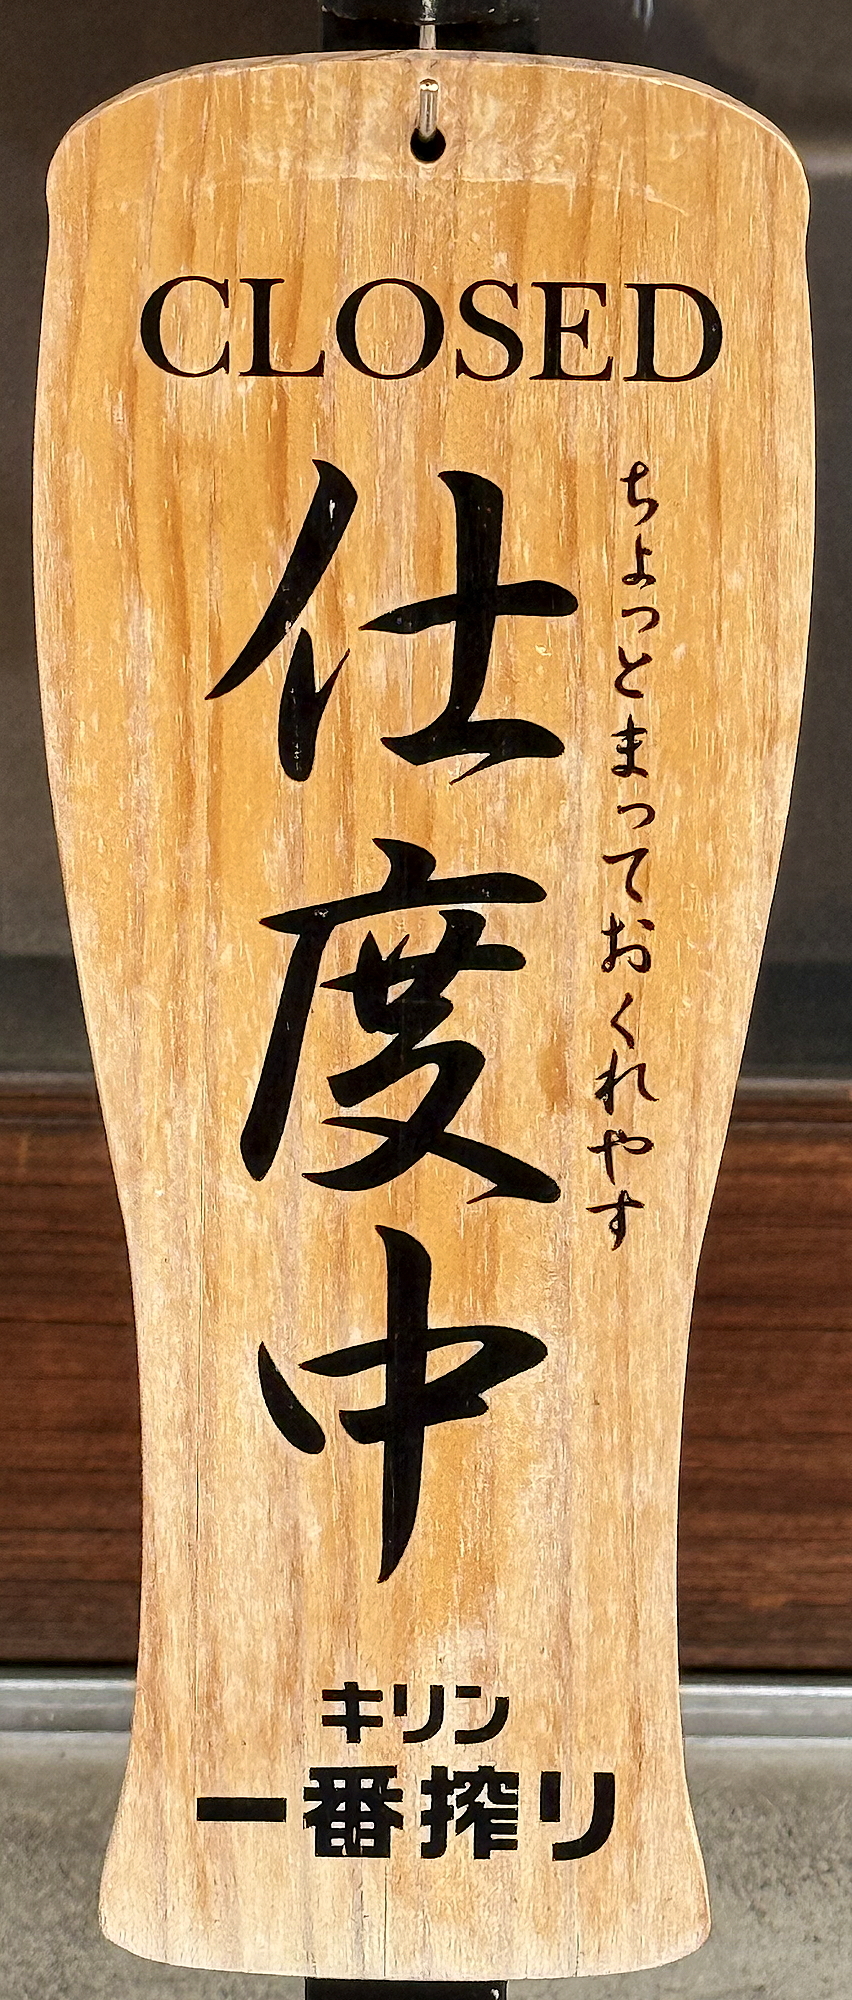 CLOSED
ちょっとまっておくれやす
仕度中
キリン
一番搾り